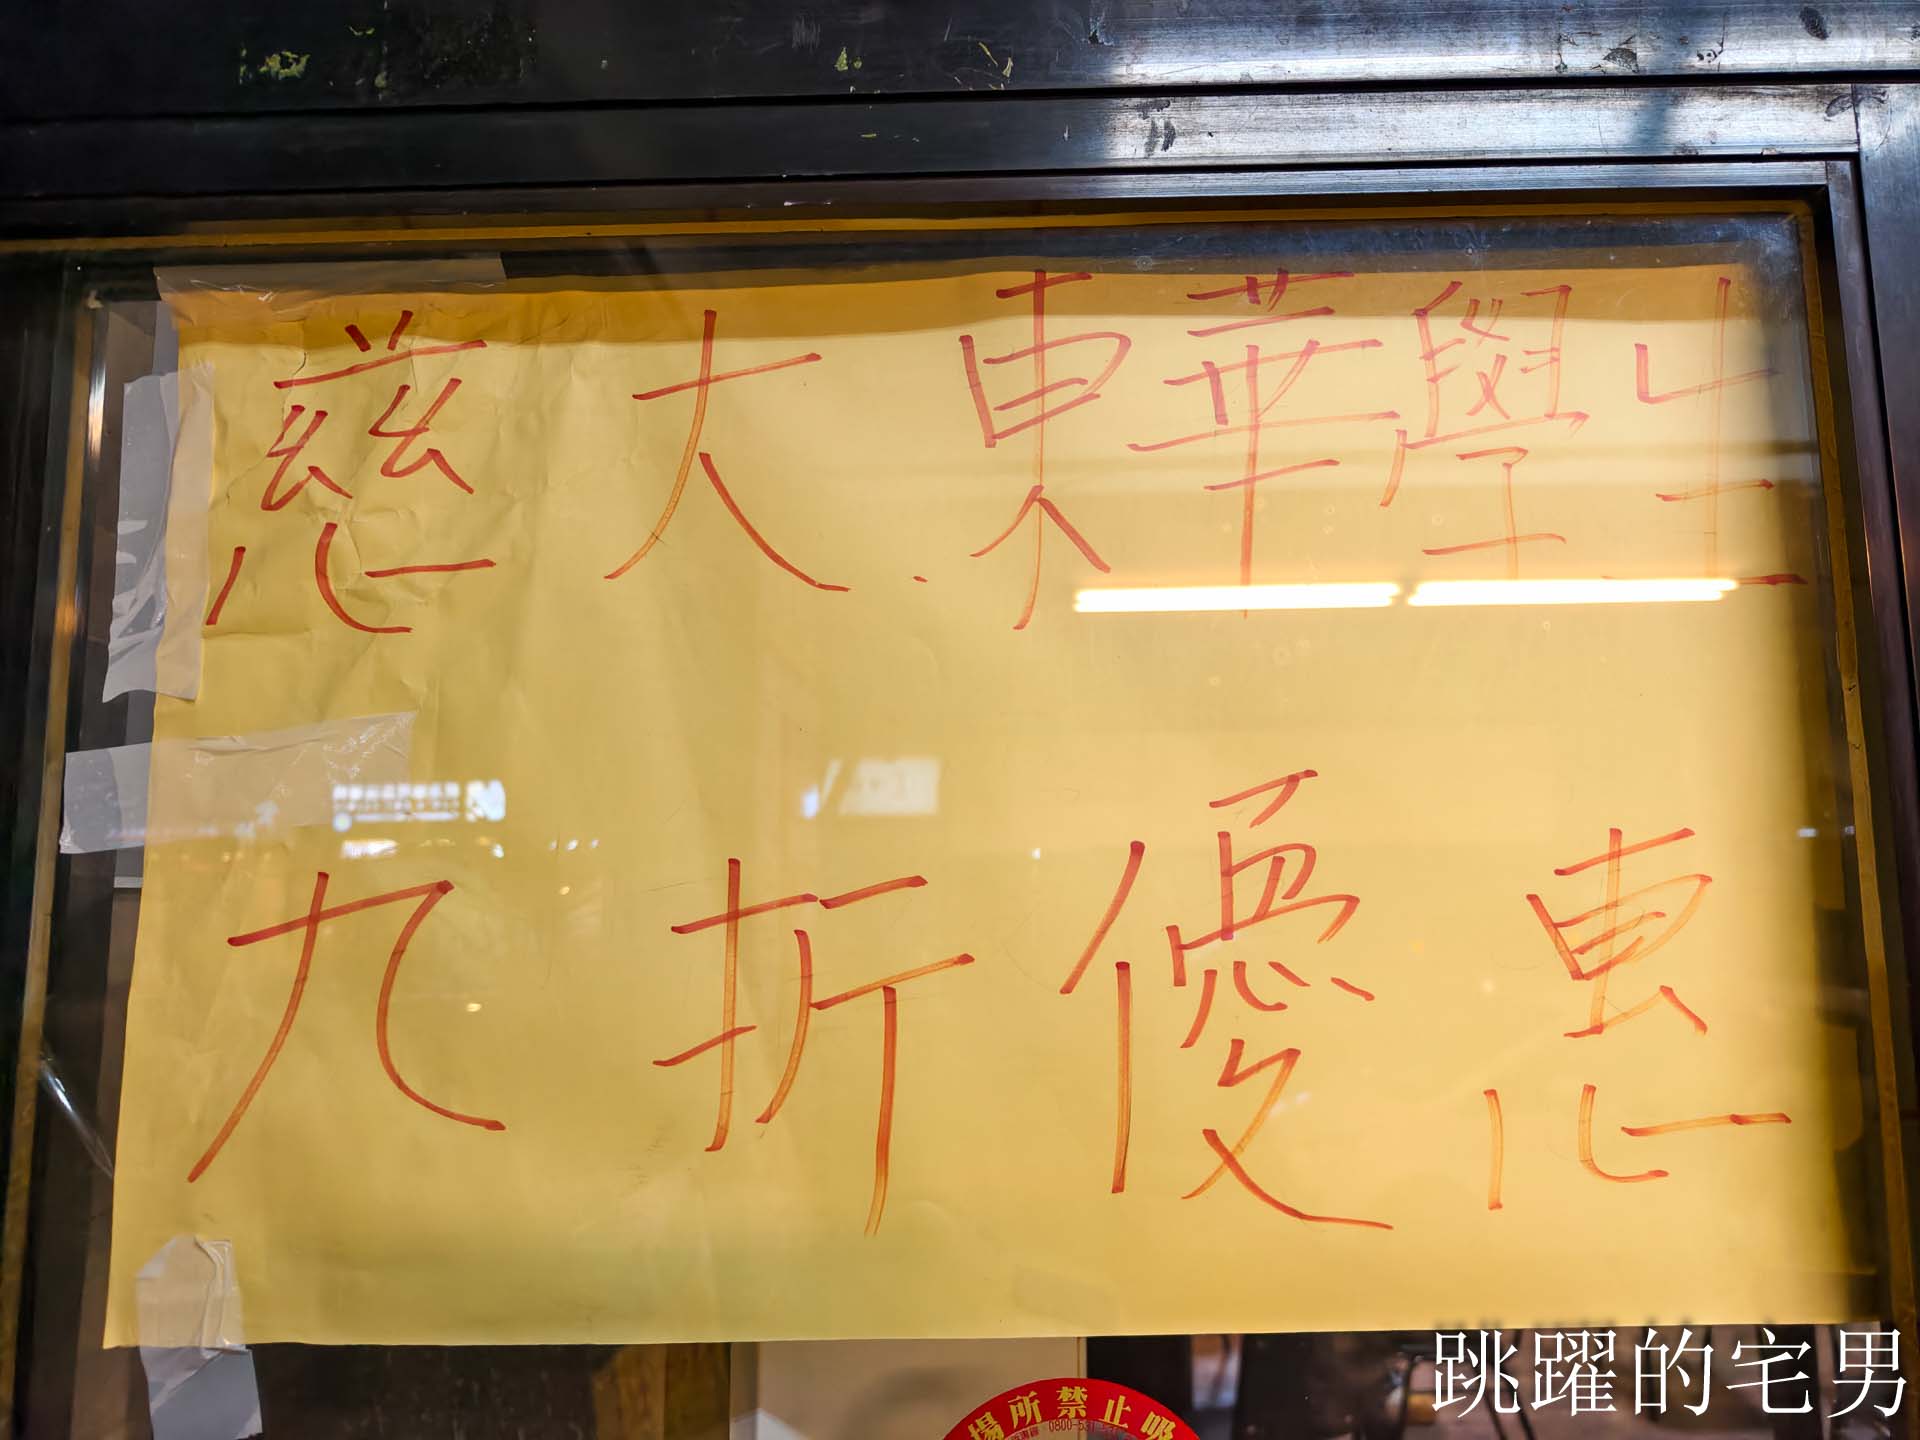 慈大.東華學生
九折優惠
場所禁止吸
跳躍的宅男